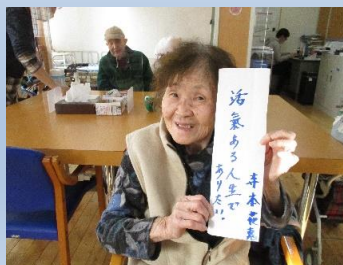 活氣ある人生で
ありたい
寺本